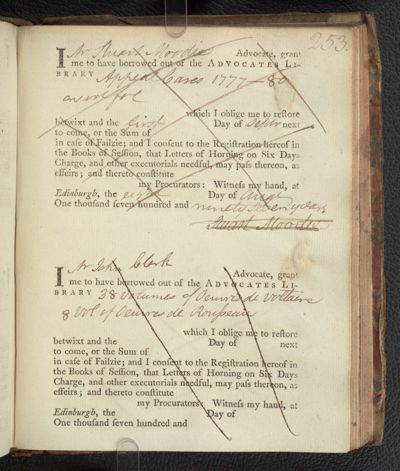 253.
I Mr Stuart Moodie Advocate, grant
me to have borrowed out of the ADVOCATES LI-
BRARY Appeal Cases 1777-80
which I oblige me to reſtore
betwixt and the first Day of Sepr next
to come, or the Sum of
in caſe of Failzie; and I conſent to the Regiſtration hereof in
the Books of Seſſion, that Letters of Horning on Six Days
Charge, and other executorials needful, may paſs thereon, as
effeirs; and thereto conſtitute
my Procurators: Witneſs my hand, at
Edinburgh, the eight Day of Augt
One thouſand ſeven hundred and ninety seven years
Stuart Moodie
I Mr John Clerk Advocate, grant
me to have borrowed out of the ADVOCATES LI-
BRARY 38 volumes of Oeuvres de Voltaire
8 vol of Oeuvres de Rousseau
which I oblige me to reſtore
betwixt and the Day of next
to come, or the Sum of
in caſe of Failzie; and I conſent to the Regiſtration hereof in
the Books of Seſſion, that Letters of Horning on Six Days
Charge, and other executorials needful, may paſs thereon, as
effeirs; and thereto conſtitute
my Procurators: Witneſs my hand, at
Edinburgh, the Day of
One thouſand ſeven hundred and